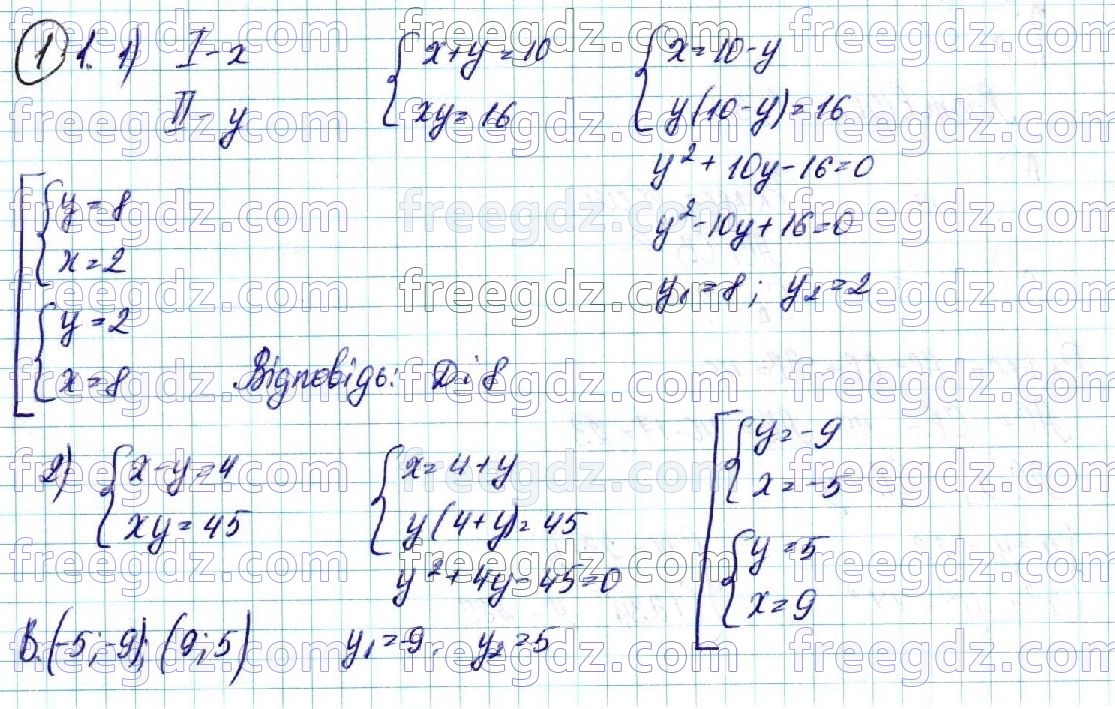 1 1. 1) I - x
II - y
{ x + y = 10
xy = 16
{ x = 10 - y
y(10 - y) = 16
y² + 10y - 16 = 0
y² - 10y + 16 = 0
y₁ = 8; y₂ = 2
[ { y = 8
x = 2
{ y = 2
x = 8
Відповідь: 2 і 8
2) { x - y = 4
xy = 45
{ x = 4 + y
y(4 + y) = 45
y² + 4y - 45 = 0
y₁ = -9, y₂ = 5
[ { y = -9
x = -5
{ y = 5
x = 9
В. (-5; -9); (9; 5)
freegdz.com